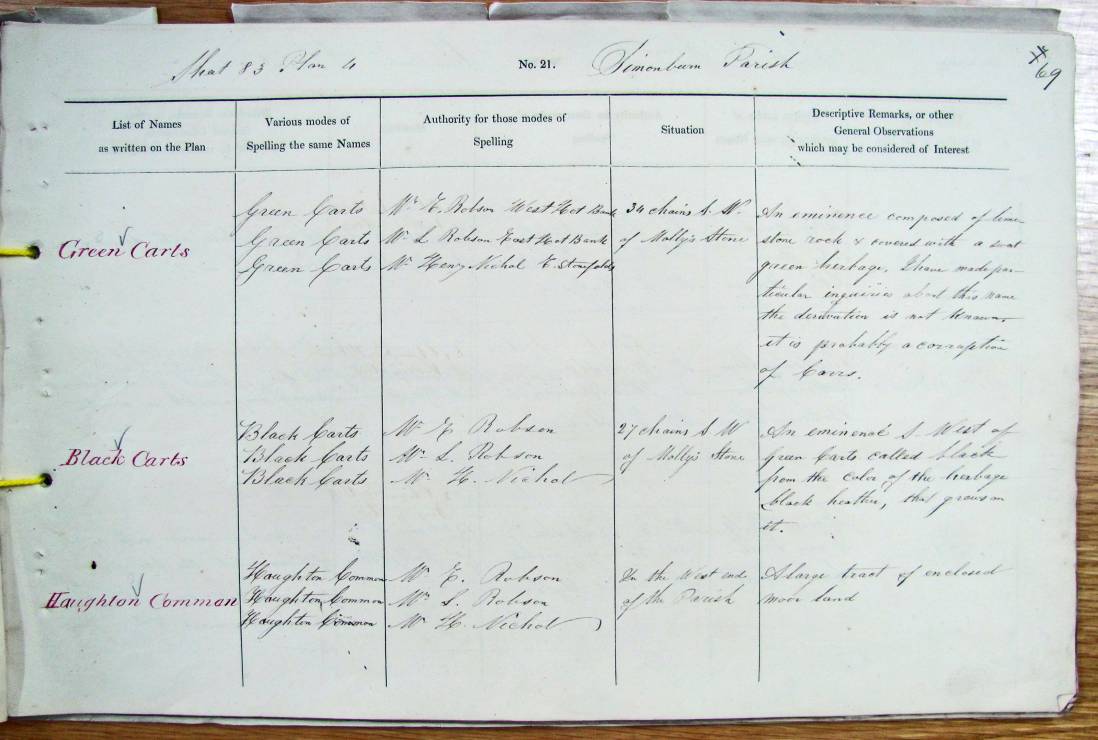 Sheet 83 Plan 4 No. 21. Simonburn Parish 69
List of Names
as written on the Plan
Various modes of
Spelling the same Names
Authority for those modes of
Spelling
Situation
Descriptive Remarks, or other
General Observations
which may be considered of Interest
Green Carts
Green Carts
Green Carts
Green Carts
Mr. T. Robson West Hot Bank
Mr. L Robson East Hot Bank
Mr Henry Nichol E. Stonefolds
34 chains S. W.
of Molly's Stone
An eminence composed of lime-
stone rock & covered with a
green herbage. I have made par-
ticular inquiries about this name
the derivation is not known.
it is probably a corruption
of Carrs.
Black Carts
Black Carts
Black Carts
Black Carts
Mr T. Robson
Mr. L. Robson
Mr H. Nichol
27 chains S. W
of Molly's Stone
An eminence S. West of
green Carts called black
from the color of the herbage
black heather, that grows on
it.
Haughton Common
Haughton Common
Haughton Common
Haughton Common
Mr T. Robson
Mr. L. Robson
Mr H. Nichol
In the West end
of the Parish
A large tract of enclosed
moor land